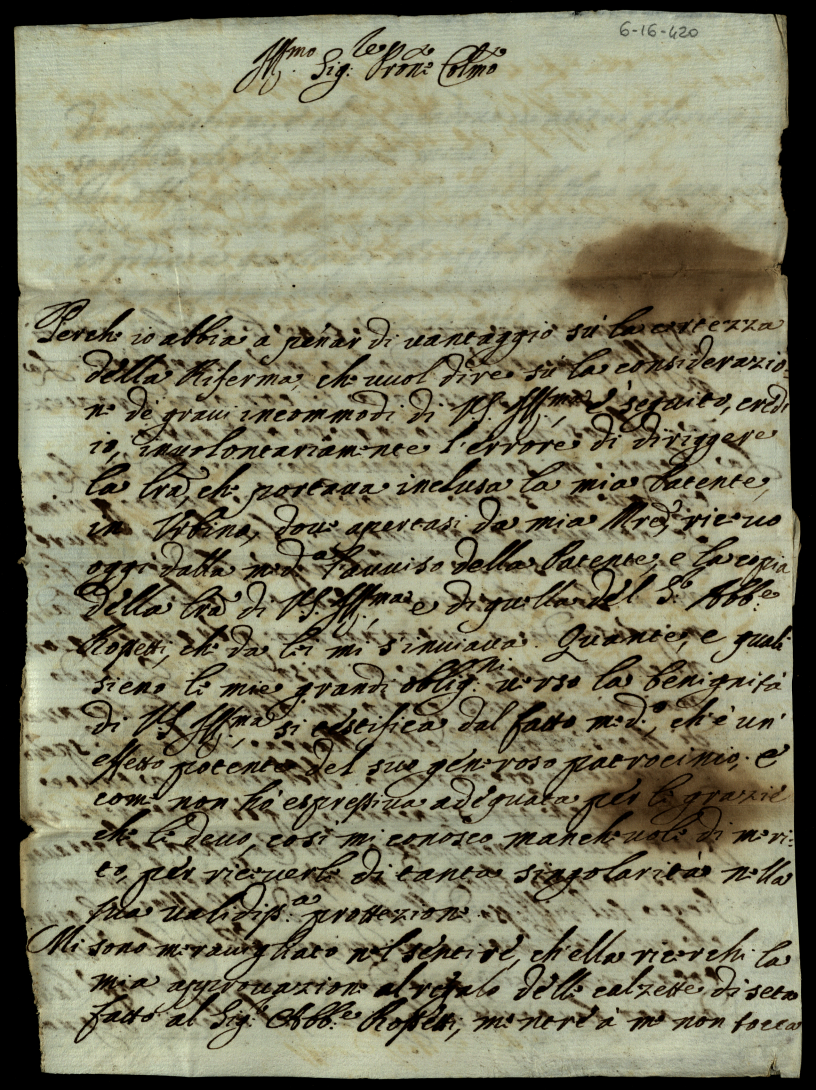 6-16-420
Illmo Sigre Prone Colmo
Perche io abbia à penar di vantaggio sù la certezza
della Riferma, che vuol dire sù la considerazio-
ne de gravi incommodi di V.S. Illma, è seguito, credi
io, involontariamente l'errore di diriggere
la lra, che portava inclusa la mia Patente,
in Urbino, dove apertasi da mia Mre, ricevo
oggi dalla meda l'avviso della Patente, e la copia
della lra di V.S. Illma, e di quella del Sr Abbe
Rossetti, che da lei mi s'inviava. Quante, e quali
sieno le mie grandi obligni verso la benignità
di V.S. Illma, si testifica dal fatto medo, ch'è un'
effetto potente del suo generoso patrocinio; e
come non hò espressiva adeguata per le grazie
che le devo, così mi conosco manchevole di meri-
to, per riceverle di tanta singolarità nella
sua validissa prottezione.
Mi sono meravigliato nel sentire, ch'ella ricerchi la
mia approvazione al regalo delle calzette di seta
fatto al Sigr Abbe Rossetti, mentre à me non tocca